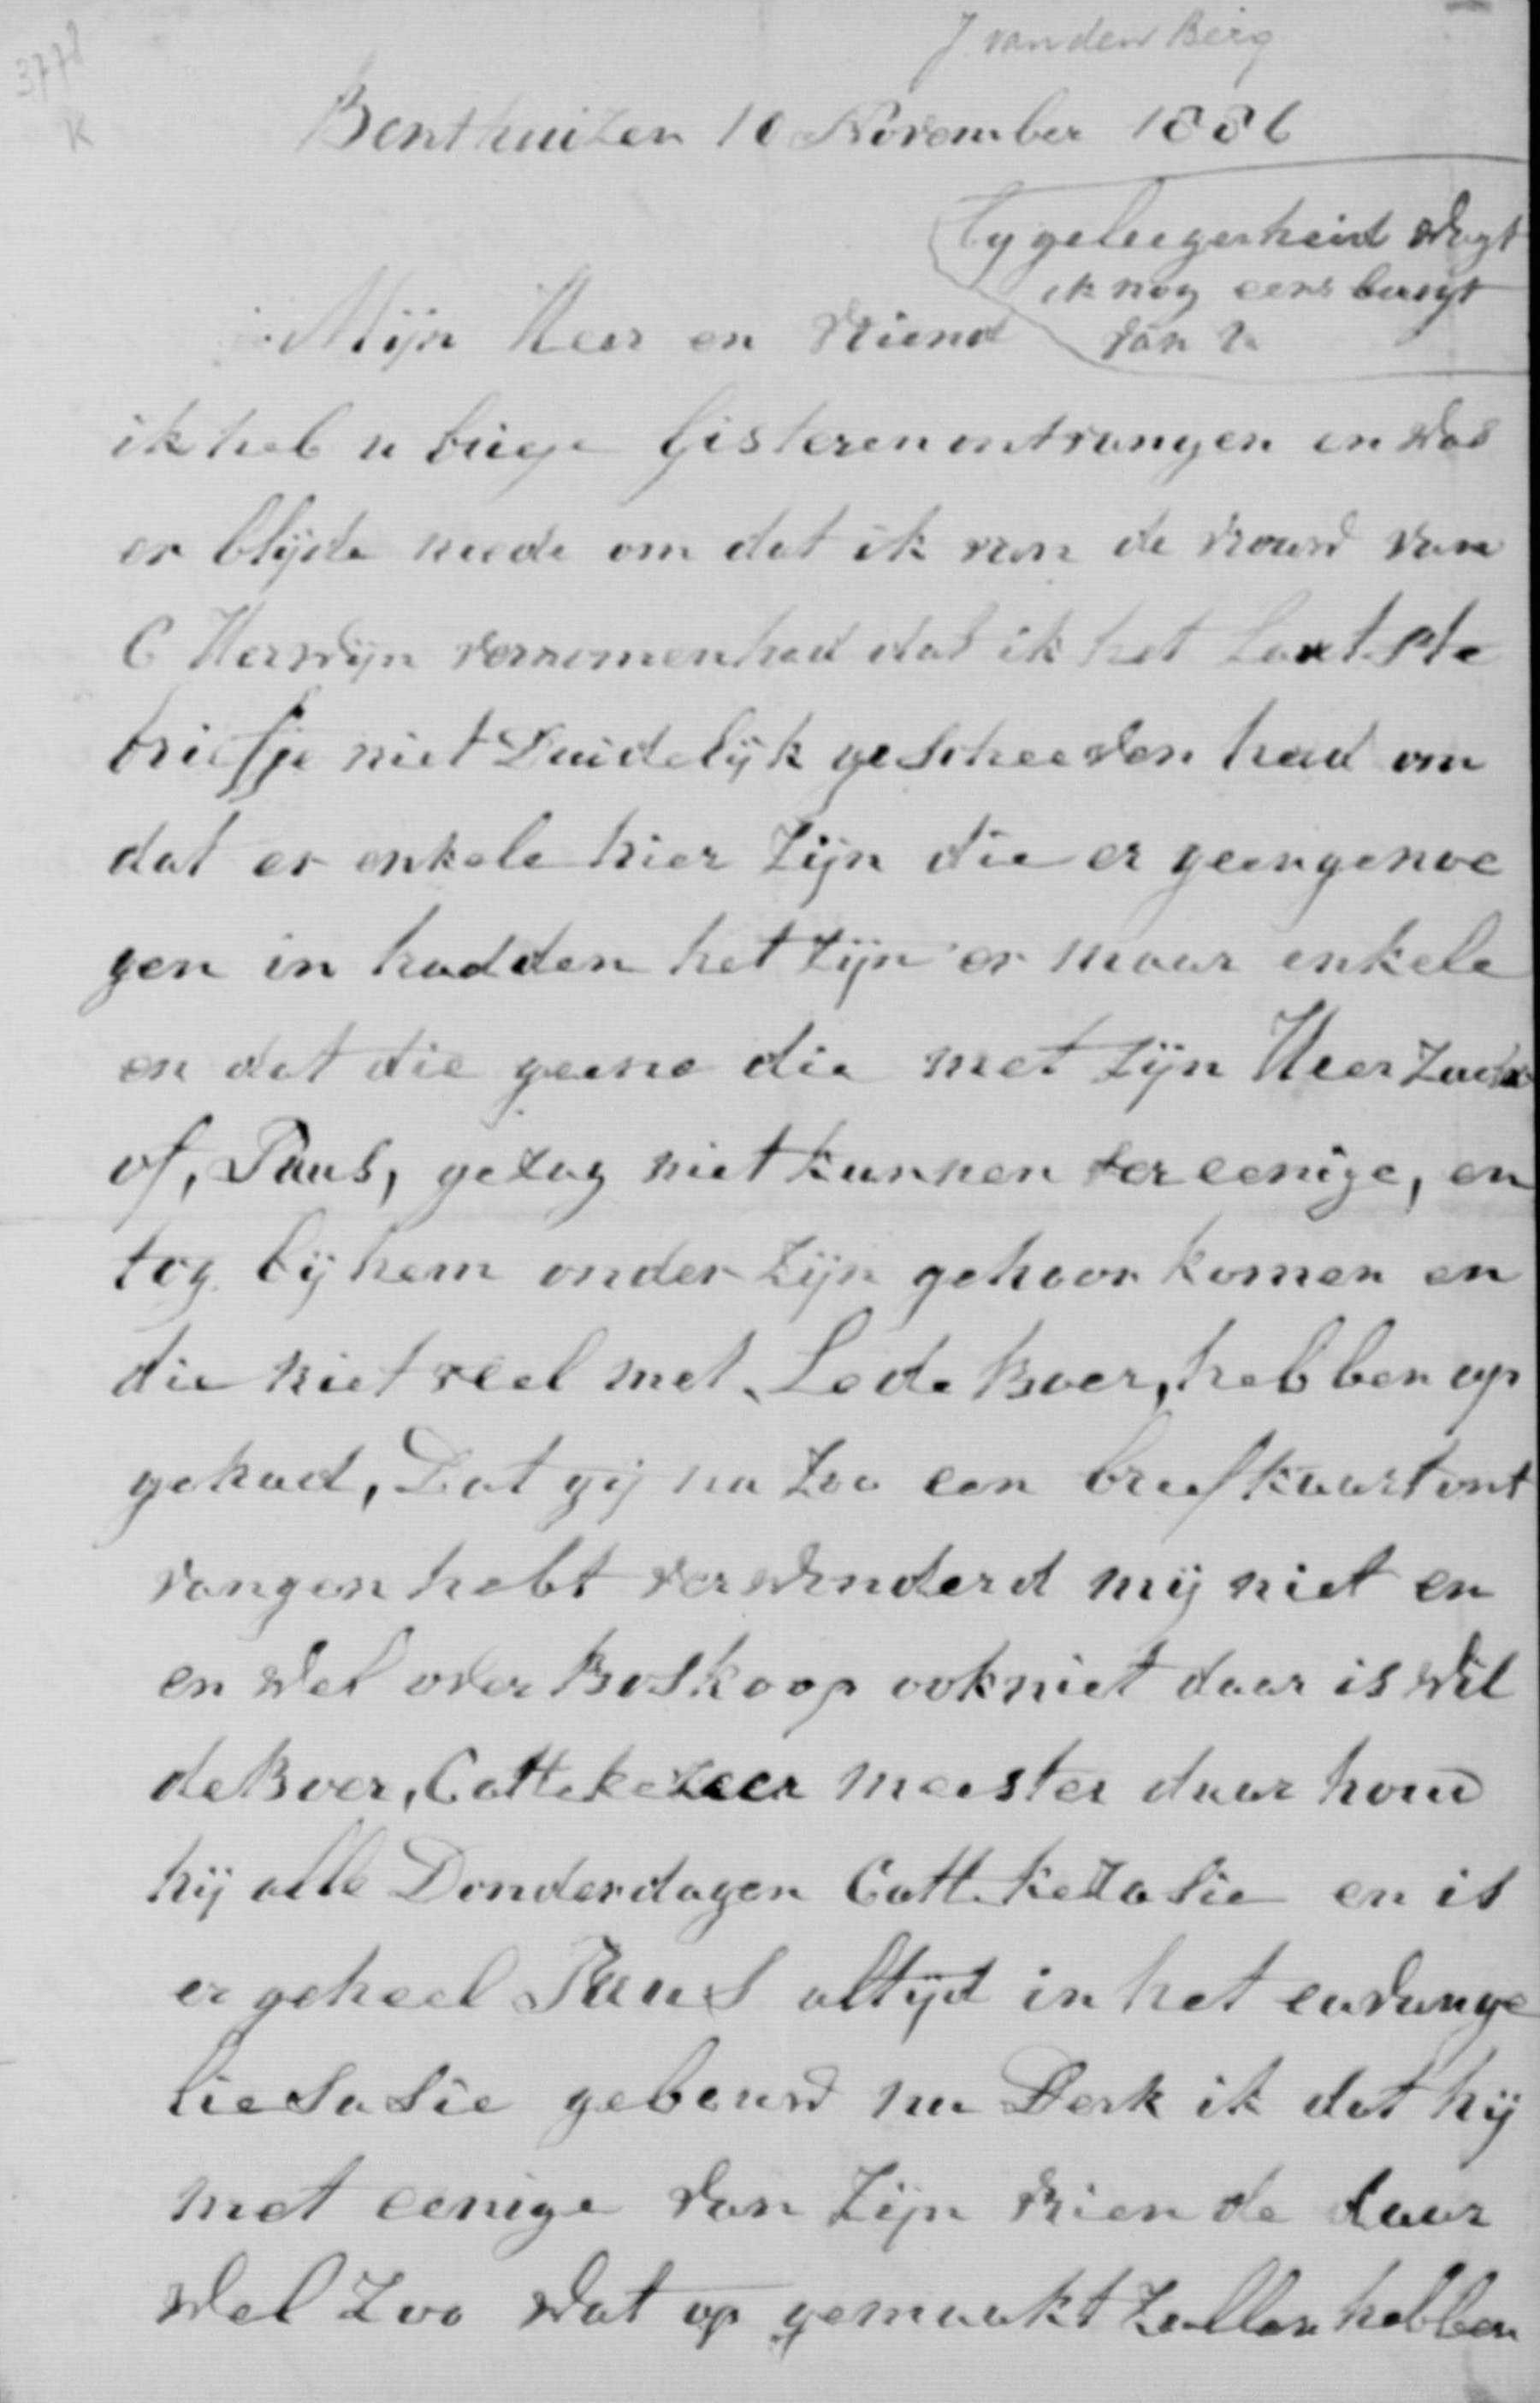 J van den Berg
3778
K
Benthuizen 10 November 1886
by geleegenheid wagt
ik nog eens berigt
van u
Mijn Heer en vriend
ik heb u briefje Gisteren ontvangen en was
er blijde meede om dat ik van de vrouw van
C Herwijn vernomen had dat ik het Laatste
briefje niet Duidelijk geschreeven had om
dat er enkele hier Zijn die er geen genoe
gen in hadden het Zijn er maar enkele
en dat die geene die met Zijn Heer
of, Paus, gezag niet kunnen vereenige, en
tog bij hem onder Zijn gehoor komen en
die niet veel met Lede Boer, hebben op
gehad, Dat gij nu Zoo een briefkaart ont
vangen hebt verwonderd mij niet en
en wel over Boskoop ook niet daar is wil
de Boer, Cattekezeer meester daar houd
hij alle Donderdagen Cattekezasie en is
er geheel Paus altijd in het eavange
liesasie gebouw nu Denk ik dat hij
met eenige van Zijn vriende daar
wel Zoo wat op gemaakt Zullen hebben